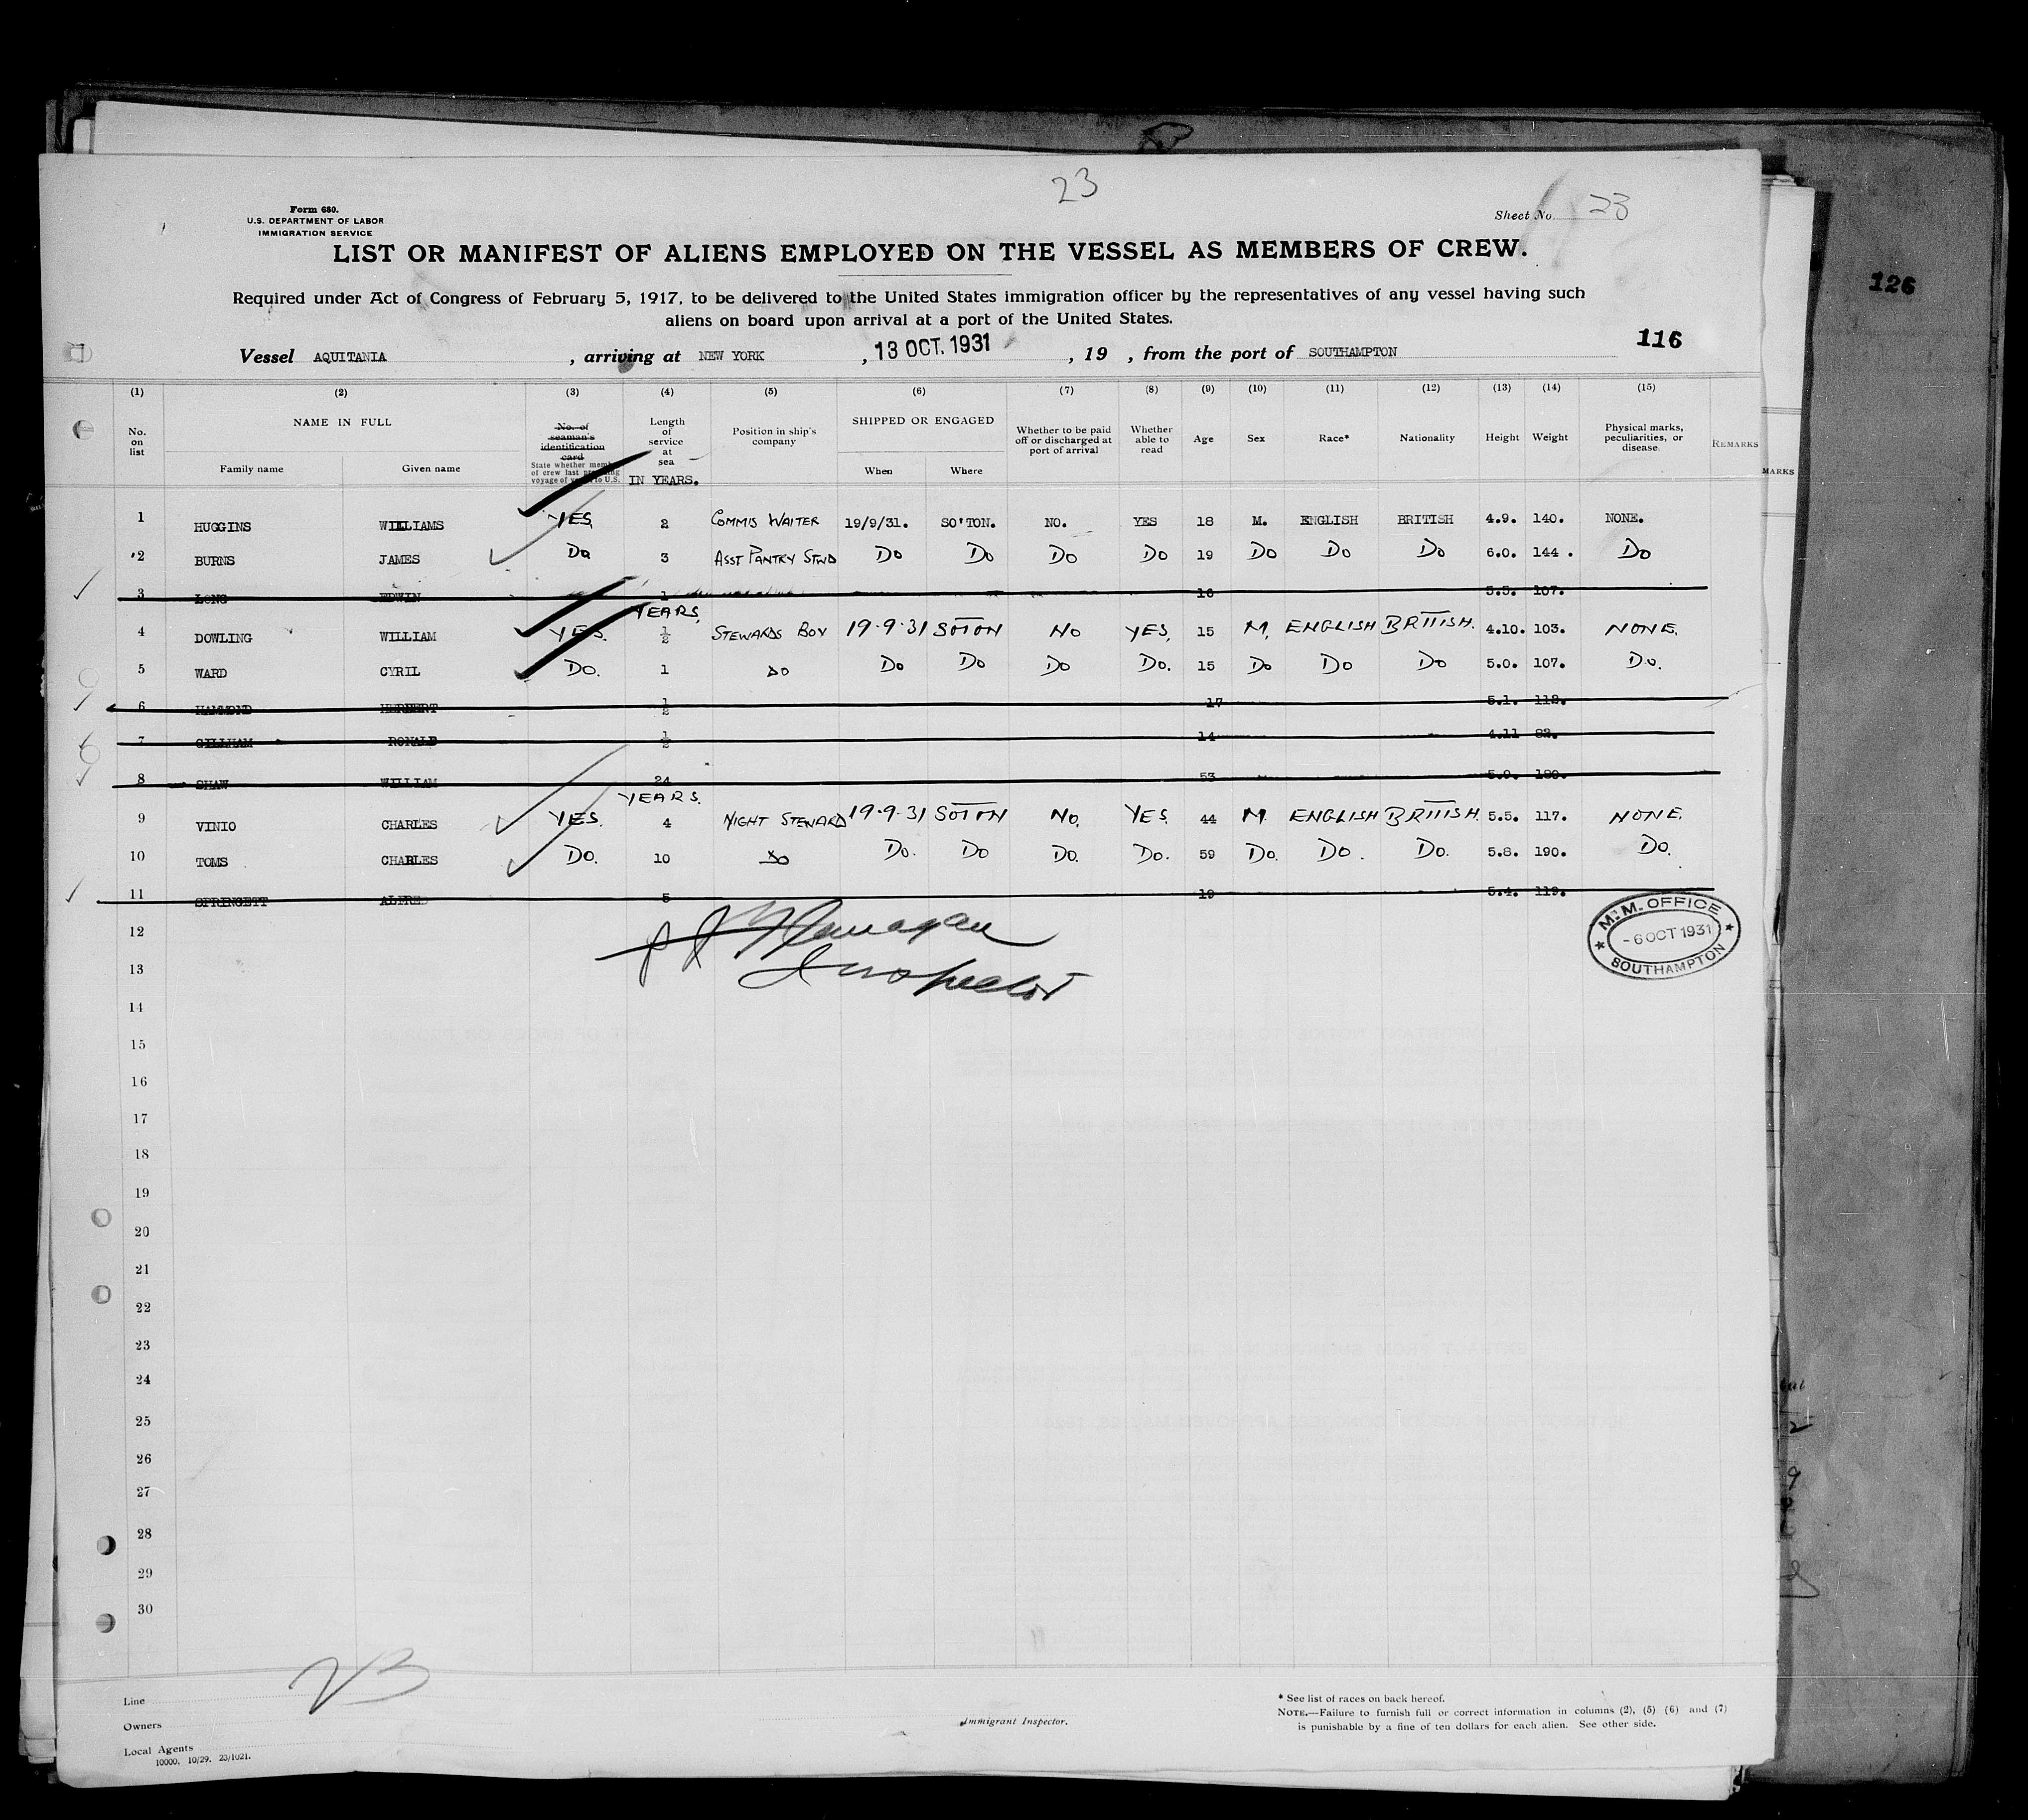 23
Form 680.
U.S. DEPARTMENT OF LABOR
IMMIGRATION SERVICE
Sheet No. 23
LIST OR MANIFEST OF ALIENS EMPLOYED ON THE VESSEL AS MEMBERS OF CREW.
Required under Act of Congress of February 5, 1917, to be delivered to the United States immigration officer by the representatives of any vessel having such
aliens on board upon arrival at a port of the United States.
126
116
Vessel AQUITANIA , arriving at NEW YORK , 13 OCT. 1931 , 19 , from the port of SOUTHAMPTON
(1) (2) (3) (4) (5) (6) (7) (8) (9) (10) (11) (12) (13) (14) (15)
No. on list NAME IN FULL Family name Given name No. of seaman's identification card State whether member of crew last preceding voyage of vessel to U.S. Length of service at sea IN YEARS. Position in ship's company SHIPPED OR ENGAGED When Where Whether to be paid off or discharged at port of arrival Whether able to read Age Sex Race* Nationality Height Weight Physical marks, peculiarities, or disease REMARKS
MARKS
1 HUGGINS WILLIAMS YES 2 COMMIS WAITER 19/9/31. SO'TON. NO. YES 18 M. ENGLISH BRITISH 4.9. 140. NONE.
2 BURNS JAMES Do 3 ASST PANTRY STWD Do Do Do Do 19 Do Do Do 6.0. 144. Do
3 LONG EDWIN 1 16 5.5. 107.
YEARS,
4 DOWLING WILLIAM YES. ½ STEWARDS BOY 19.9.31 SOTON No YES, 15 M, ENGLISH BRITISH. 4.10. 103. NONE.
5 WARD CYRIL DO. 1 DO Do Do Do Do. 15 Do Do Do 5.0. 107. Do.
6 HAMMOND HERBERT ½ 17 5.1. 112.
7 GILLHAM RONALD ½ 14 4.11 82.
8 SHAW WILLIAM 24 53 5.9. 180.
YEARS.
9 VINIO CHARLES YES. 4 NIGHT STEWARD 19.9.31 SOTON No. YES. 44 M. ENGLISH BRITISH. 5.5. 117. NONE.
10 TOMS CHARLES DO. 10 Do Do. Do Do. Do. 59 Do. Do. Do. 5.8. 190. Do.
11 SPRINGETT ALFRED 5 19 5.4. 119.
12
13
Inspector
M.M. OFFICE
- 6 OCT 1931
SOUTHAMPTON
14
15
16
17
18
19
20
21
22
23
24
25
26
27
28
29
30
23
Line
Owners
Local Agents
10000. 10/29. 23/1021.
Immigrant Inspector.
* See list of races on back hereof.
NOTE.—Failure to furnish full or correct information in columns (2), (5) (6) and (7)
is punishable by a fine of ten dollars for each alien. See other side.